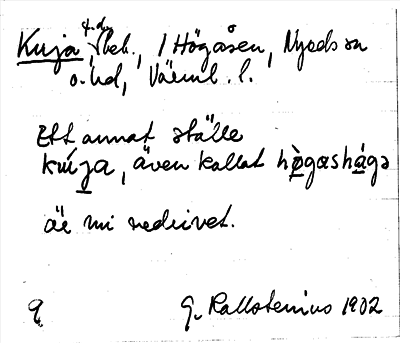 Kuja, f.d. beb., / Högåsen, Nyeds sn
o. hd, Värml. l.
Ett annat ställe
kúja, även kallat hø̀gashágə
är nu nedrivet.
9 G. Kallstenius 1902